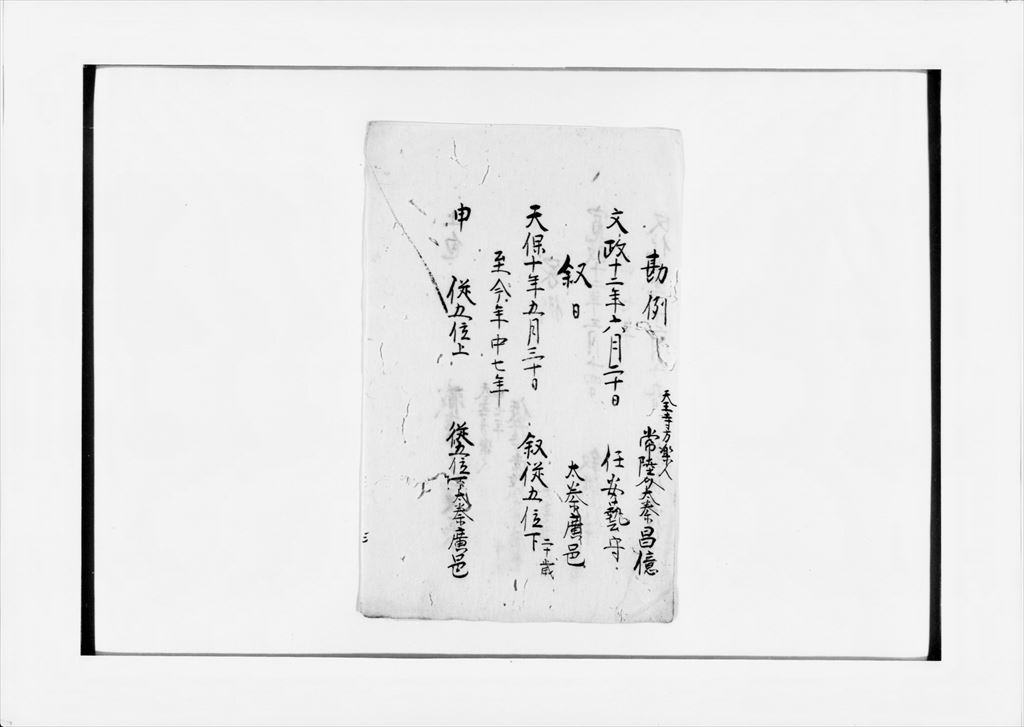 勘例
天王寺方楽人
常陸介太秦昌億
文政十二年六月二十日 任安藝守
叙日
太秦廣邑
天保十年五月三十日 叙従五位下 二十歳
至今年中七年
申 従五位上 従五位下太秦廣邑
三